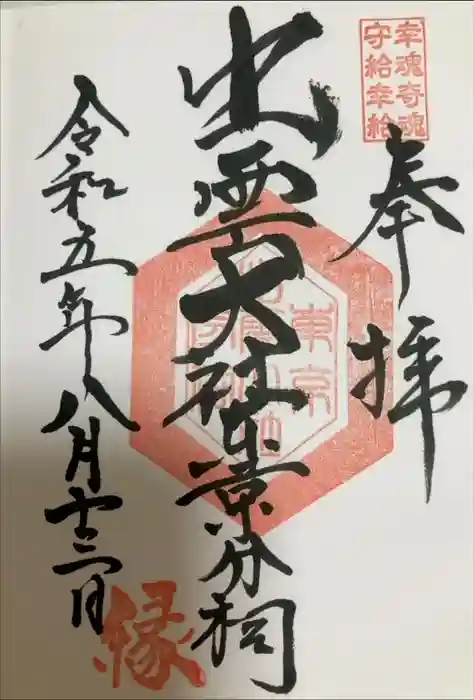 幸魂奇魂
守給幸給
奉拝
出雲大社東京分祠
東京
令和五年八月十三日
縁